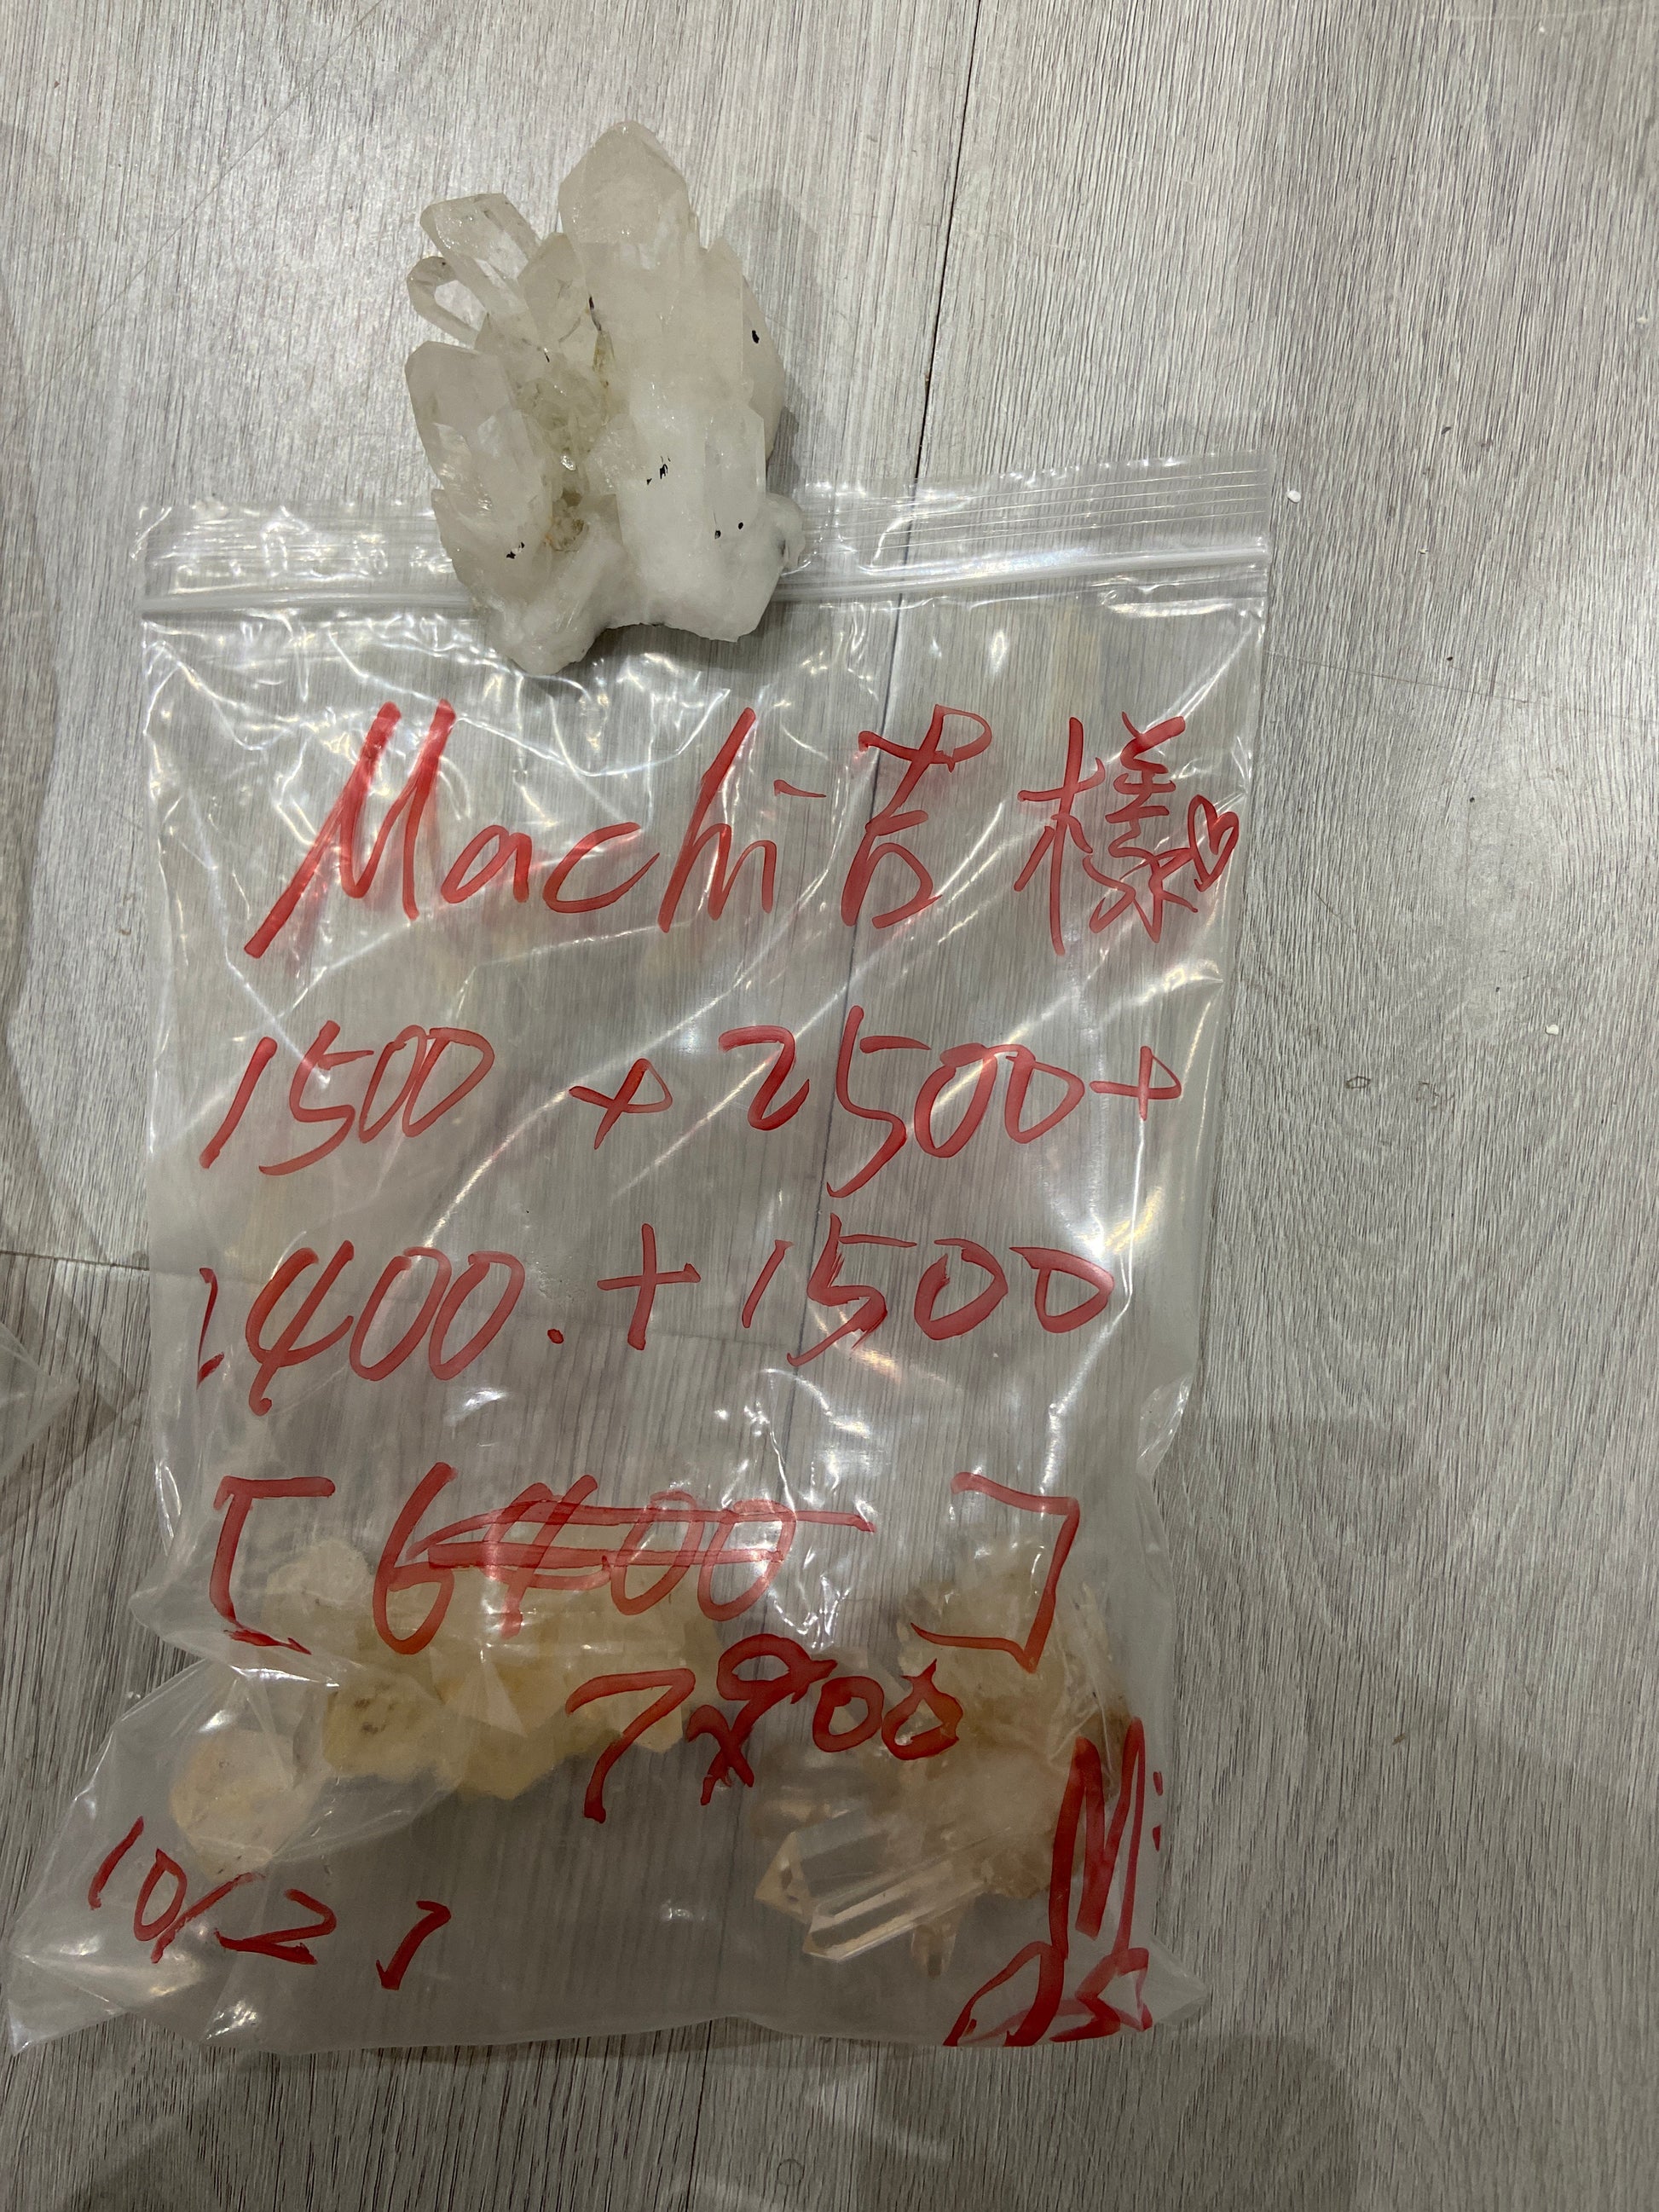 Machi吉様♡
1500 + 2500 +
2400. + 1500
[ 6400 ]
7900
10/27